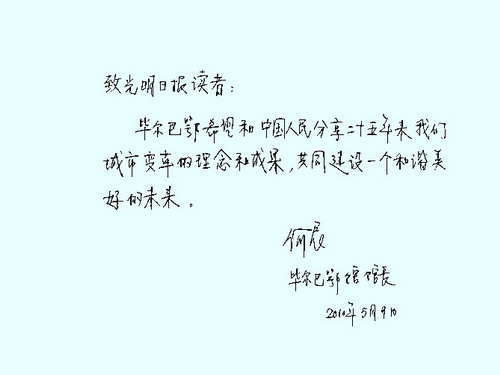 致光明日报读者：
毕尔巴鄂希望和中国人民分享二十五年来我们
城市变革的理念和成果，共同建设一个和谐美
好的未来。
何晨
毕尔巴鄂馆馆长
2010年5月9日